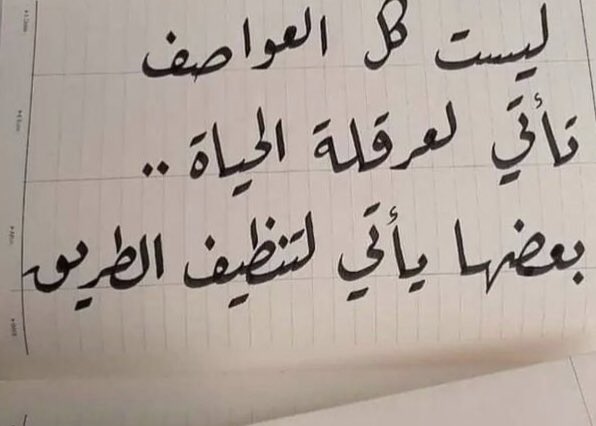 ليست كل العواصف
تأتي لعرقلة الحياة ..
بعضها يأتي لتنظيف الطريق